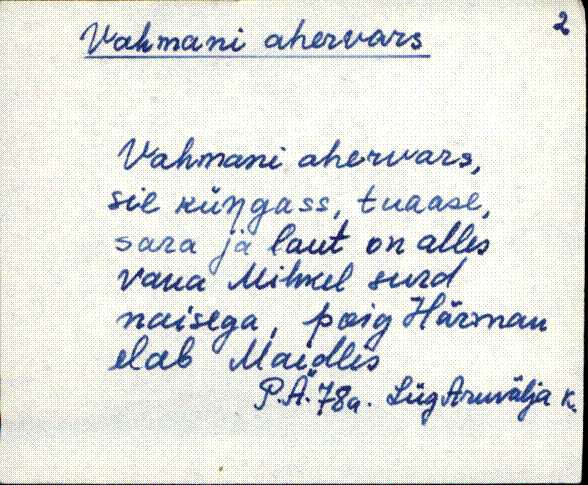 2
Vahmani ahervars
Vahmani ahervars,
sie küŋgass, tuaase,
sara ja laut on alles
vana Mihkel surd
naisega, poig Härman
elab Maidlis
P.Ä. 78a. Lüg Aruvälja k.